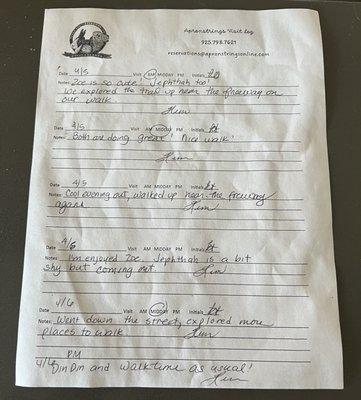 Apronstrings Visit Log
925.798.7621
reservations@apronstringsonline.com
Date 4/5 Visit AM MIDDAY PM Initials
Notes: Zoe is so cute! Jephthah too!
We explored the trail up near the freeway on
our walk.
Kim
Date 3/5 Visit AM MIDDAY PM Initials
Notes: Both are doing great! Nice walk!
Kim
Date 4/5 Visit AM MIDDAY PM Initials
Notes: Cool evening out, walked up near the freeway
again Kim
Date 4/6 Visit AM MIDDAY PM Initials
Notes: I'm enjoyed Zoe. Jephthah is a bit
shy but coming out. Kim
Date 4/6 Visit AM MIDDAY PM Initials
Notes: Went down the street, explored more
places to walk Kim
PM
4/6 Din Din and walktime as usual!
Kim